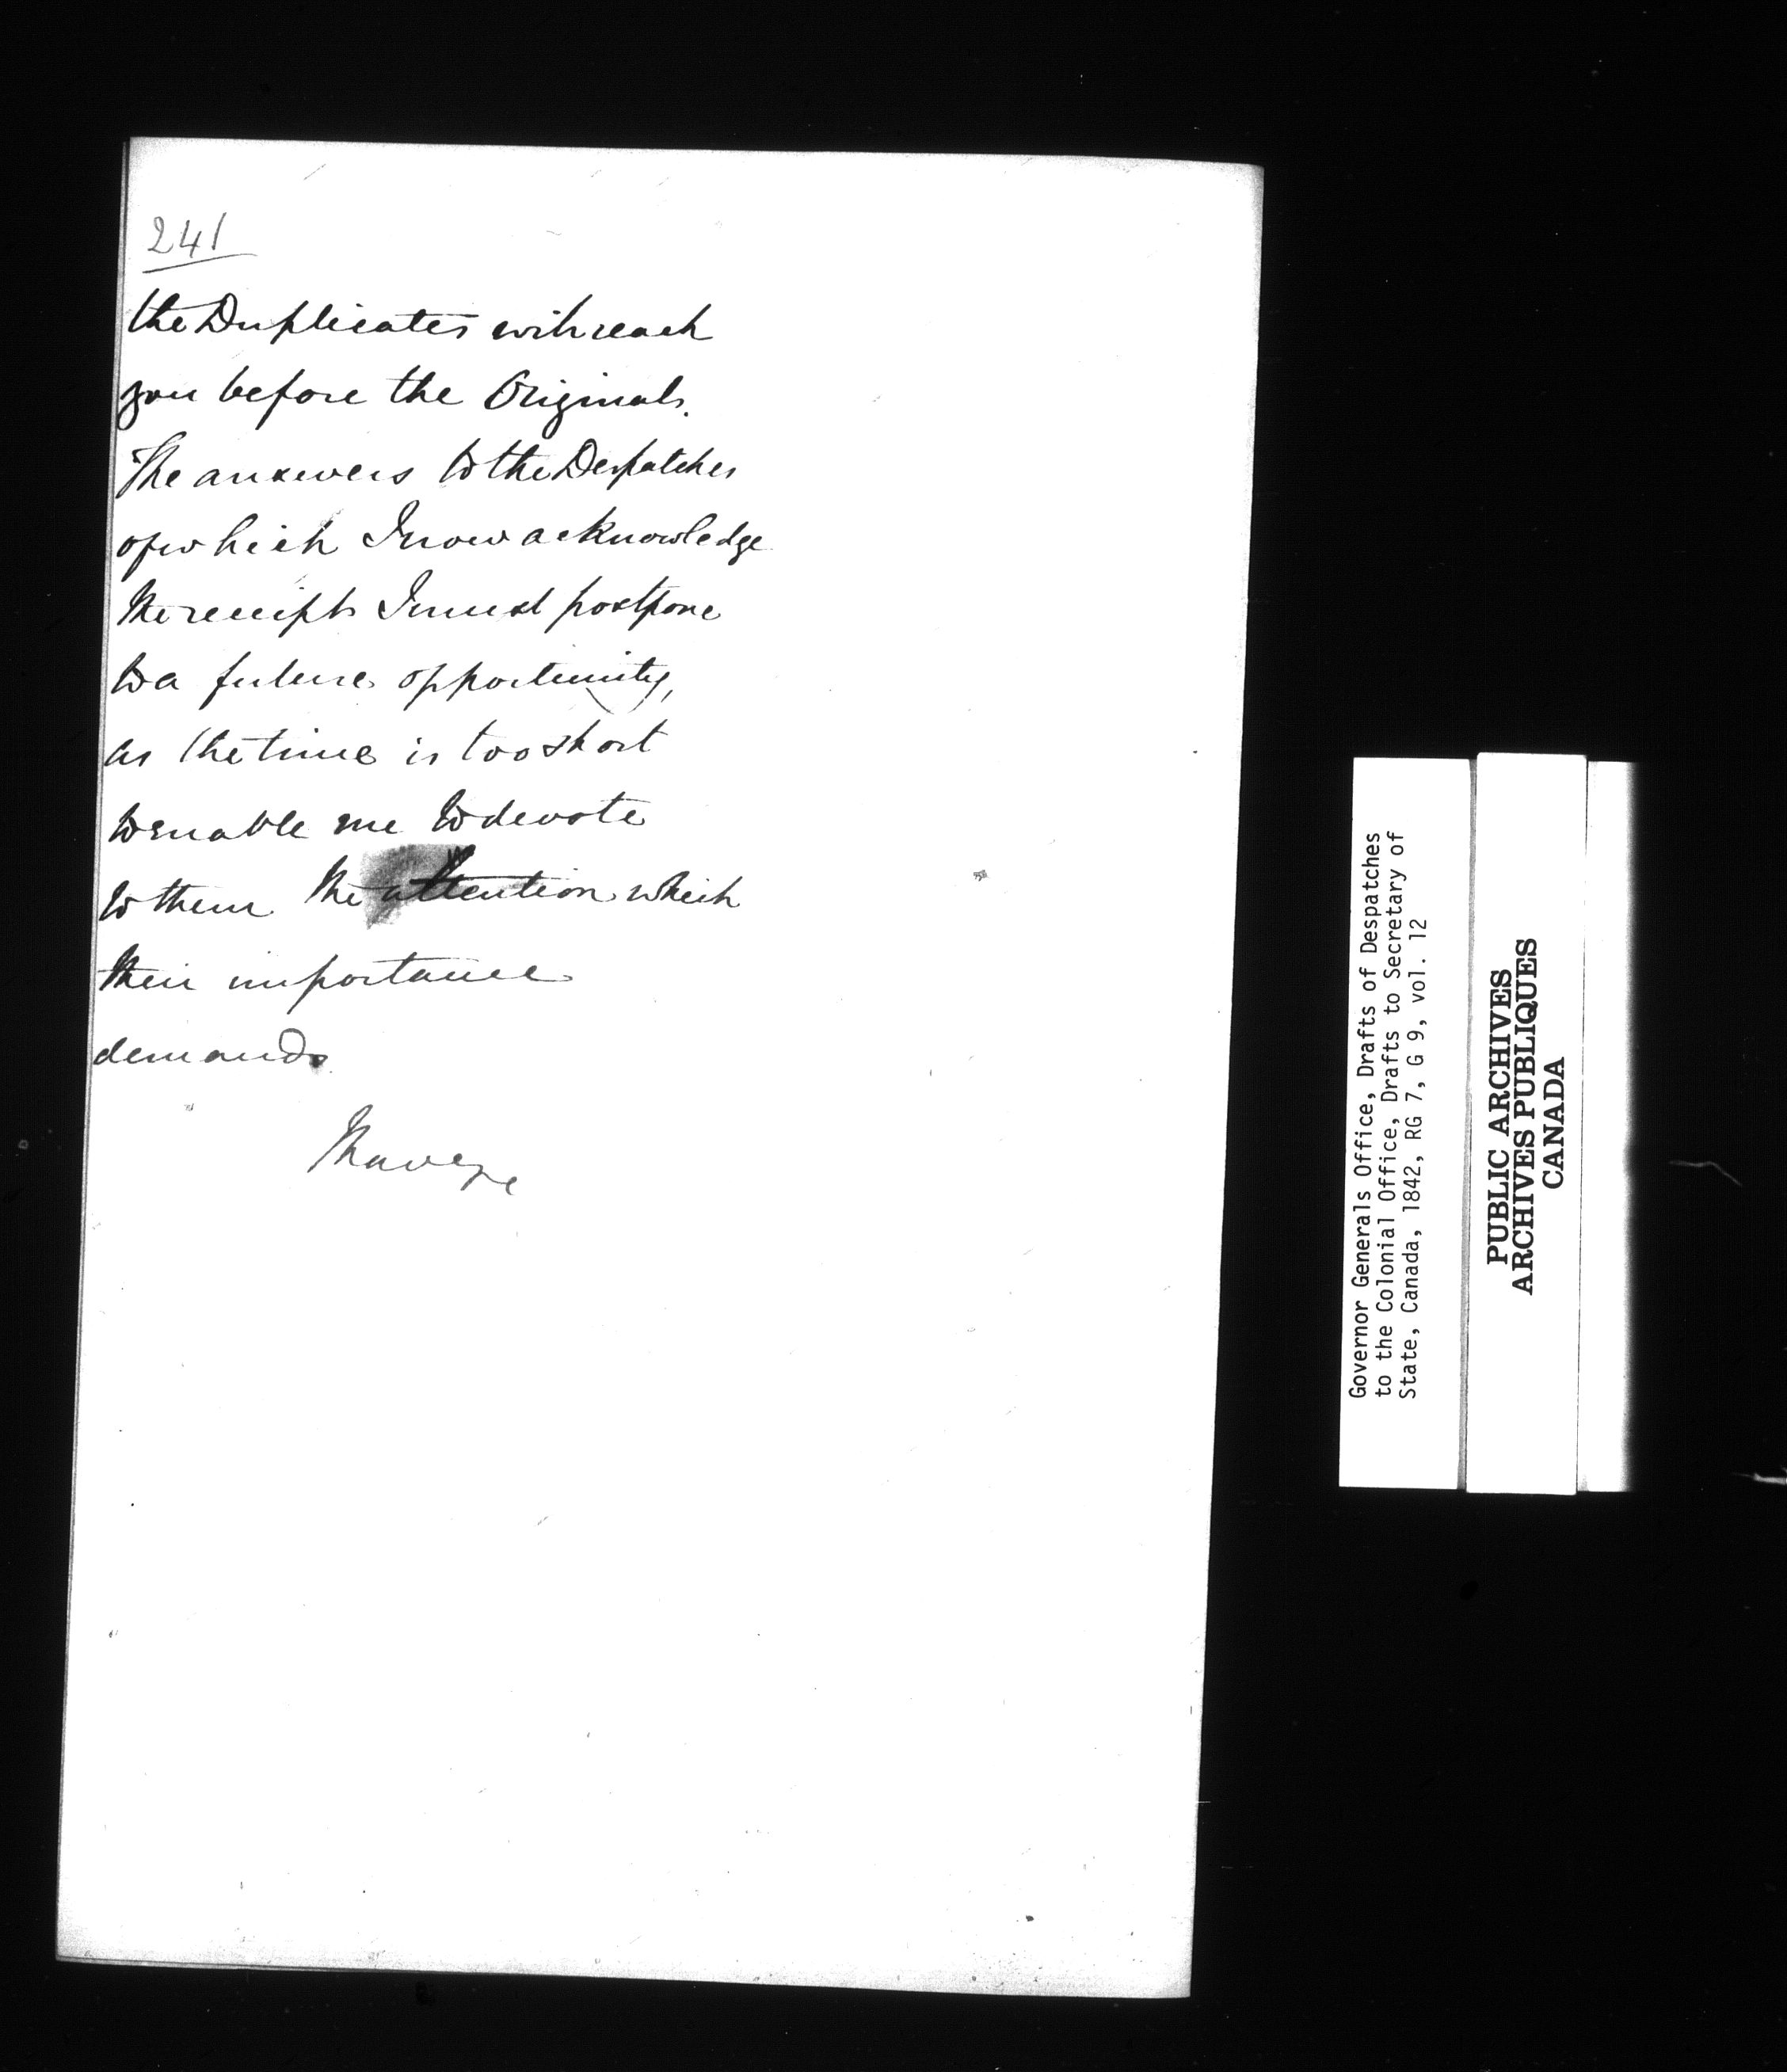 241
the Duplicates will reach
you before the Originals.
The answers to the Despatches
of which I now acknowledge
the receipt I must postpone
to a future opportunity,
as the time is too short
to enable me to devote
to them the attention which
their importance
demands
I have &c
Governor Generals Office, Drafts of Despatches
to the Colonial Office, Drafts to Secretary of
State, Canada, 1842, RG 7, G 9, vol. 12
PUBLIC ARCHIVES
ARCHIVES PUBLIQUES
CANADA